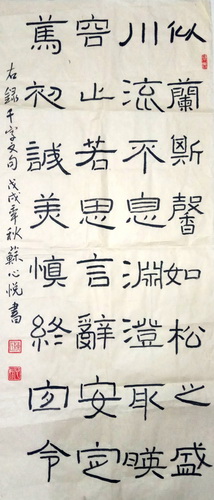 似蘭斯馨如松之盛
川流不息淵澄取暎
容止若思言辭安定
篤初誠美慎終宜令
右錄千字文句戊戌年秋蘇心悅書